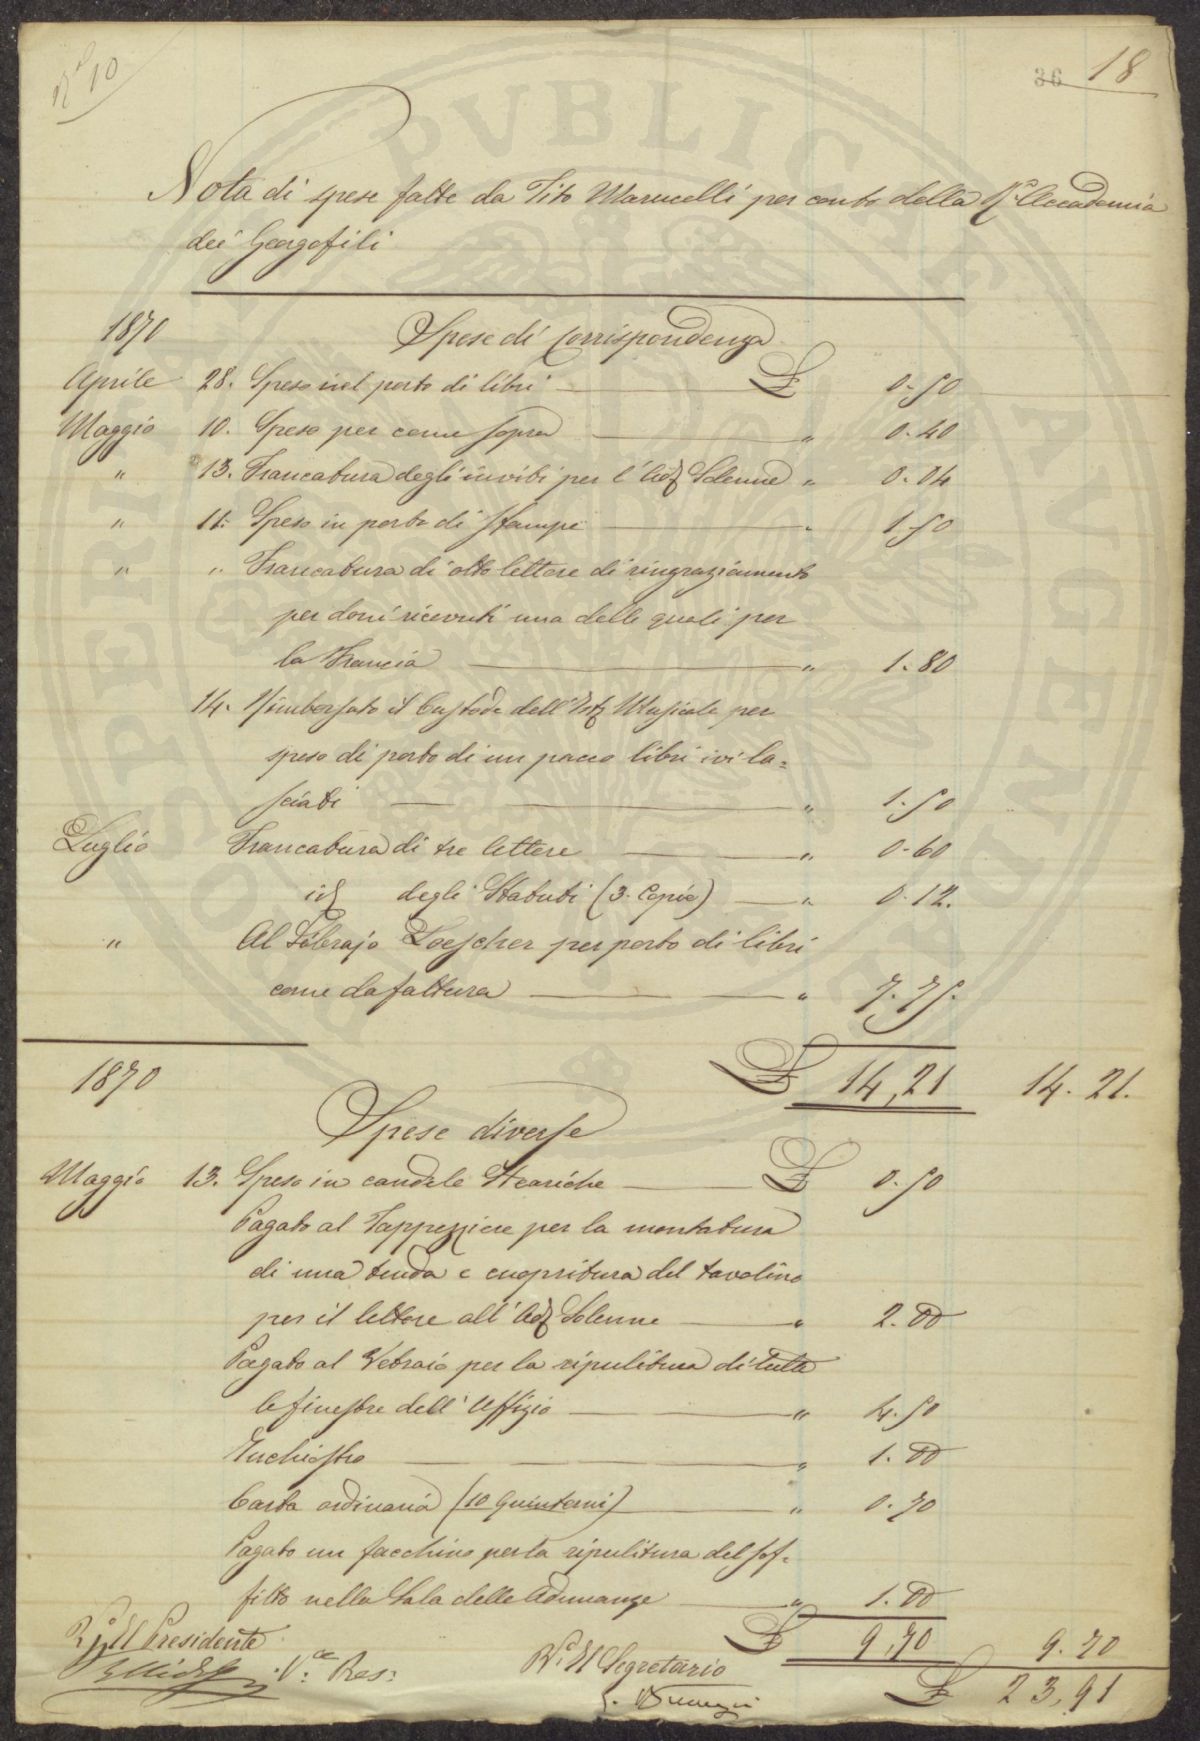 Nº 10
36 18
PROSPERITATI PVBLICAE AVGENDAE
Nota di spese fatte da Tito Marucelli per conto della Rº Accademia
dei Georgofili
1870 Spese di Corrispondenza
Aprile 28. Speso nel porto di libri £ 0.50
Maggio 10. Speso per come sopra " 0.40
" 13. Francatura degli inviti per l'Adz Solenne " 0.04
" 11. Speso in porto di Stampe " 1.50
" " Francatura di otto lettere di ringraziamento
per doni ricevuti una delle quali per
la Francia " 1.80
14. Rimborsato il Custode dell'Istº Musicale per
speso di porto di un pacco libri ivi la=
sciati " 1.50
Luglio Francatura di tre lettere " 0.60
id degli Statuti (3. Copie) " 0.12.
" Al Librajo Loescher per porto di libri
come da fattura " 7.75.
£ 14,21 14.21.
1870
Spese diverse
Maggio 13. Speso in candele Steariche £ 0.50
Pagato al Tappezziere per la montatura
di una tenda e cuopritura del tavolino
per il lettore all'Adz Solenne " 2.00
Pagato al Vetraio per la ripulitura di tutte
le finestre dell'Uffizio " 4.50
Inchiostro " 1.00
Carta ordinaria (10 Quinterni) " 0.70
Pagato un facchino per la ripulitura del sof=
fitto nella Sala delle Adunanze " 1.00
£ 9,70 9.70
Vº Il Presidente
V.ce Pres:
Vº Il Segretario
£ 23,91